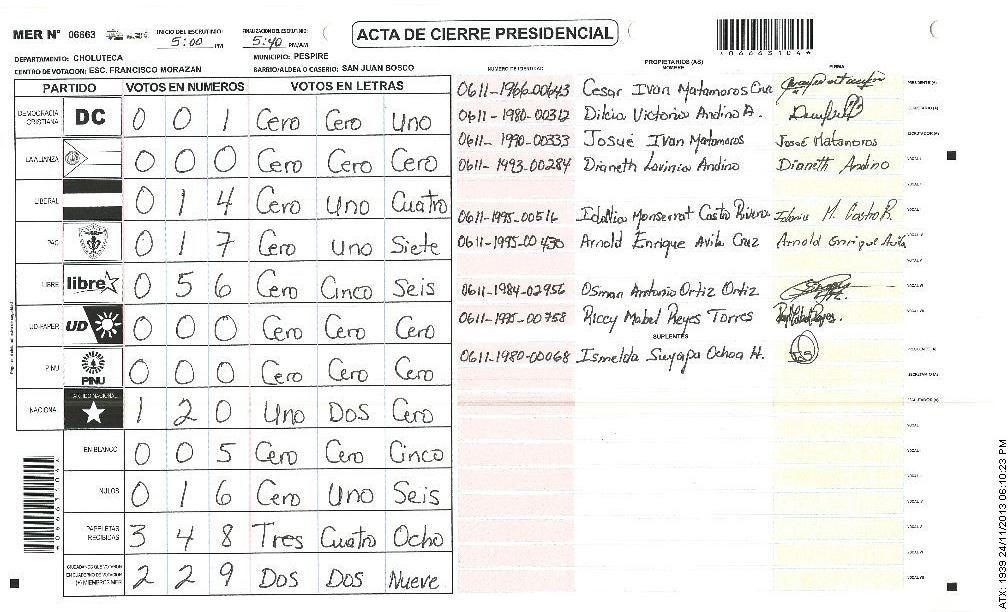 MER N° 06663
INICIO DEL ESCRUTINIO: 5:00 PM
FINALIZACION DEL ESCRUTINIO: 5:40 PM/AM
ACTA DE CIERRE PRESIDENCIAL
*06663104*
DEPARTAMENTO: CHOLUTECA
MUNICIPIO: PESPIRE
CENTRO DE VOTACION: ESC. FRANCISCO MORAZAN
BARRIO/ALDEA O CASERIO: SAN JUAN BOSCO
PARTIDO VOTOS EN NUMEROS VOTOS EN LETRAS
DEMOCRACIA CRISTIANA DC 0 0 1 Cero Cero Uno
LA ALIANZA 0 0 0 Cero Cero Cero
LIBERAL 0 1 4 Cero Uno Cuatro
PAC 0 1 7 Cero Uno Siete
LIBRE libre 0 5 6 Cero Cinco Seis
UD-FAPER UD 0 0 0 Cero Cero Cero
PINU PINU 0 0 0 Cero Cero Cero
NACIONAL PARTIDO NACIONAL 1 2 0 Uno Dos Cero
EN BLANCO 0 0 5 Cero Cero Cinco
NULOS 0 1 6 Cero Uno Seis
PAPELETAS RECIBIDAS 3 4 8 Tres Cuatro Ocho
CIUDADANOS QUE VOTARON EN CUADERNO DE VOTACION (+) MIEMBROS MER 2 2 9 Dos Dos Nueve
PROPIETARIOS (AS)
NUMERO DE IDENTIDAD NOMBRE FIRMA
0611-1966-00643 Cesar Ivan Matamoros Cruz PRESIDENTE (A)
0611-1980-00312 Dilcia Victoria Andino A. SECRETARIO (A)
0611-1990-00333 Josué Ivan Matamoros Josué Matamoros ESCRUTADOR (A)
0611-1993-00284 Dianeth Lavinia Andino Dianeth Andino VOCAL I
0611-1995-00516 Idallia Monserrat Castro Rivera M. Castro R.
0611-1995-00430 Arnold Enrique Avila Cruz Arnold Enrique Avila
0611-1984-02956 Osman Antonio Ortiz Ortiz
0611-1995-00758 Riccy Mabel Reyes Torres
SUPLENTES
0611-1980-00068 Ismelda Suyapa Ochoa H.
ATX: 1939 24/11/2013 06:10:23 PM